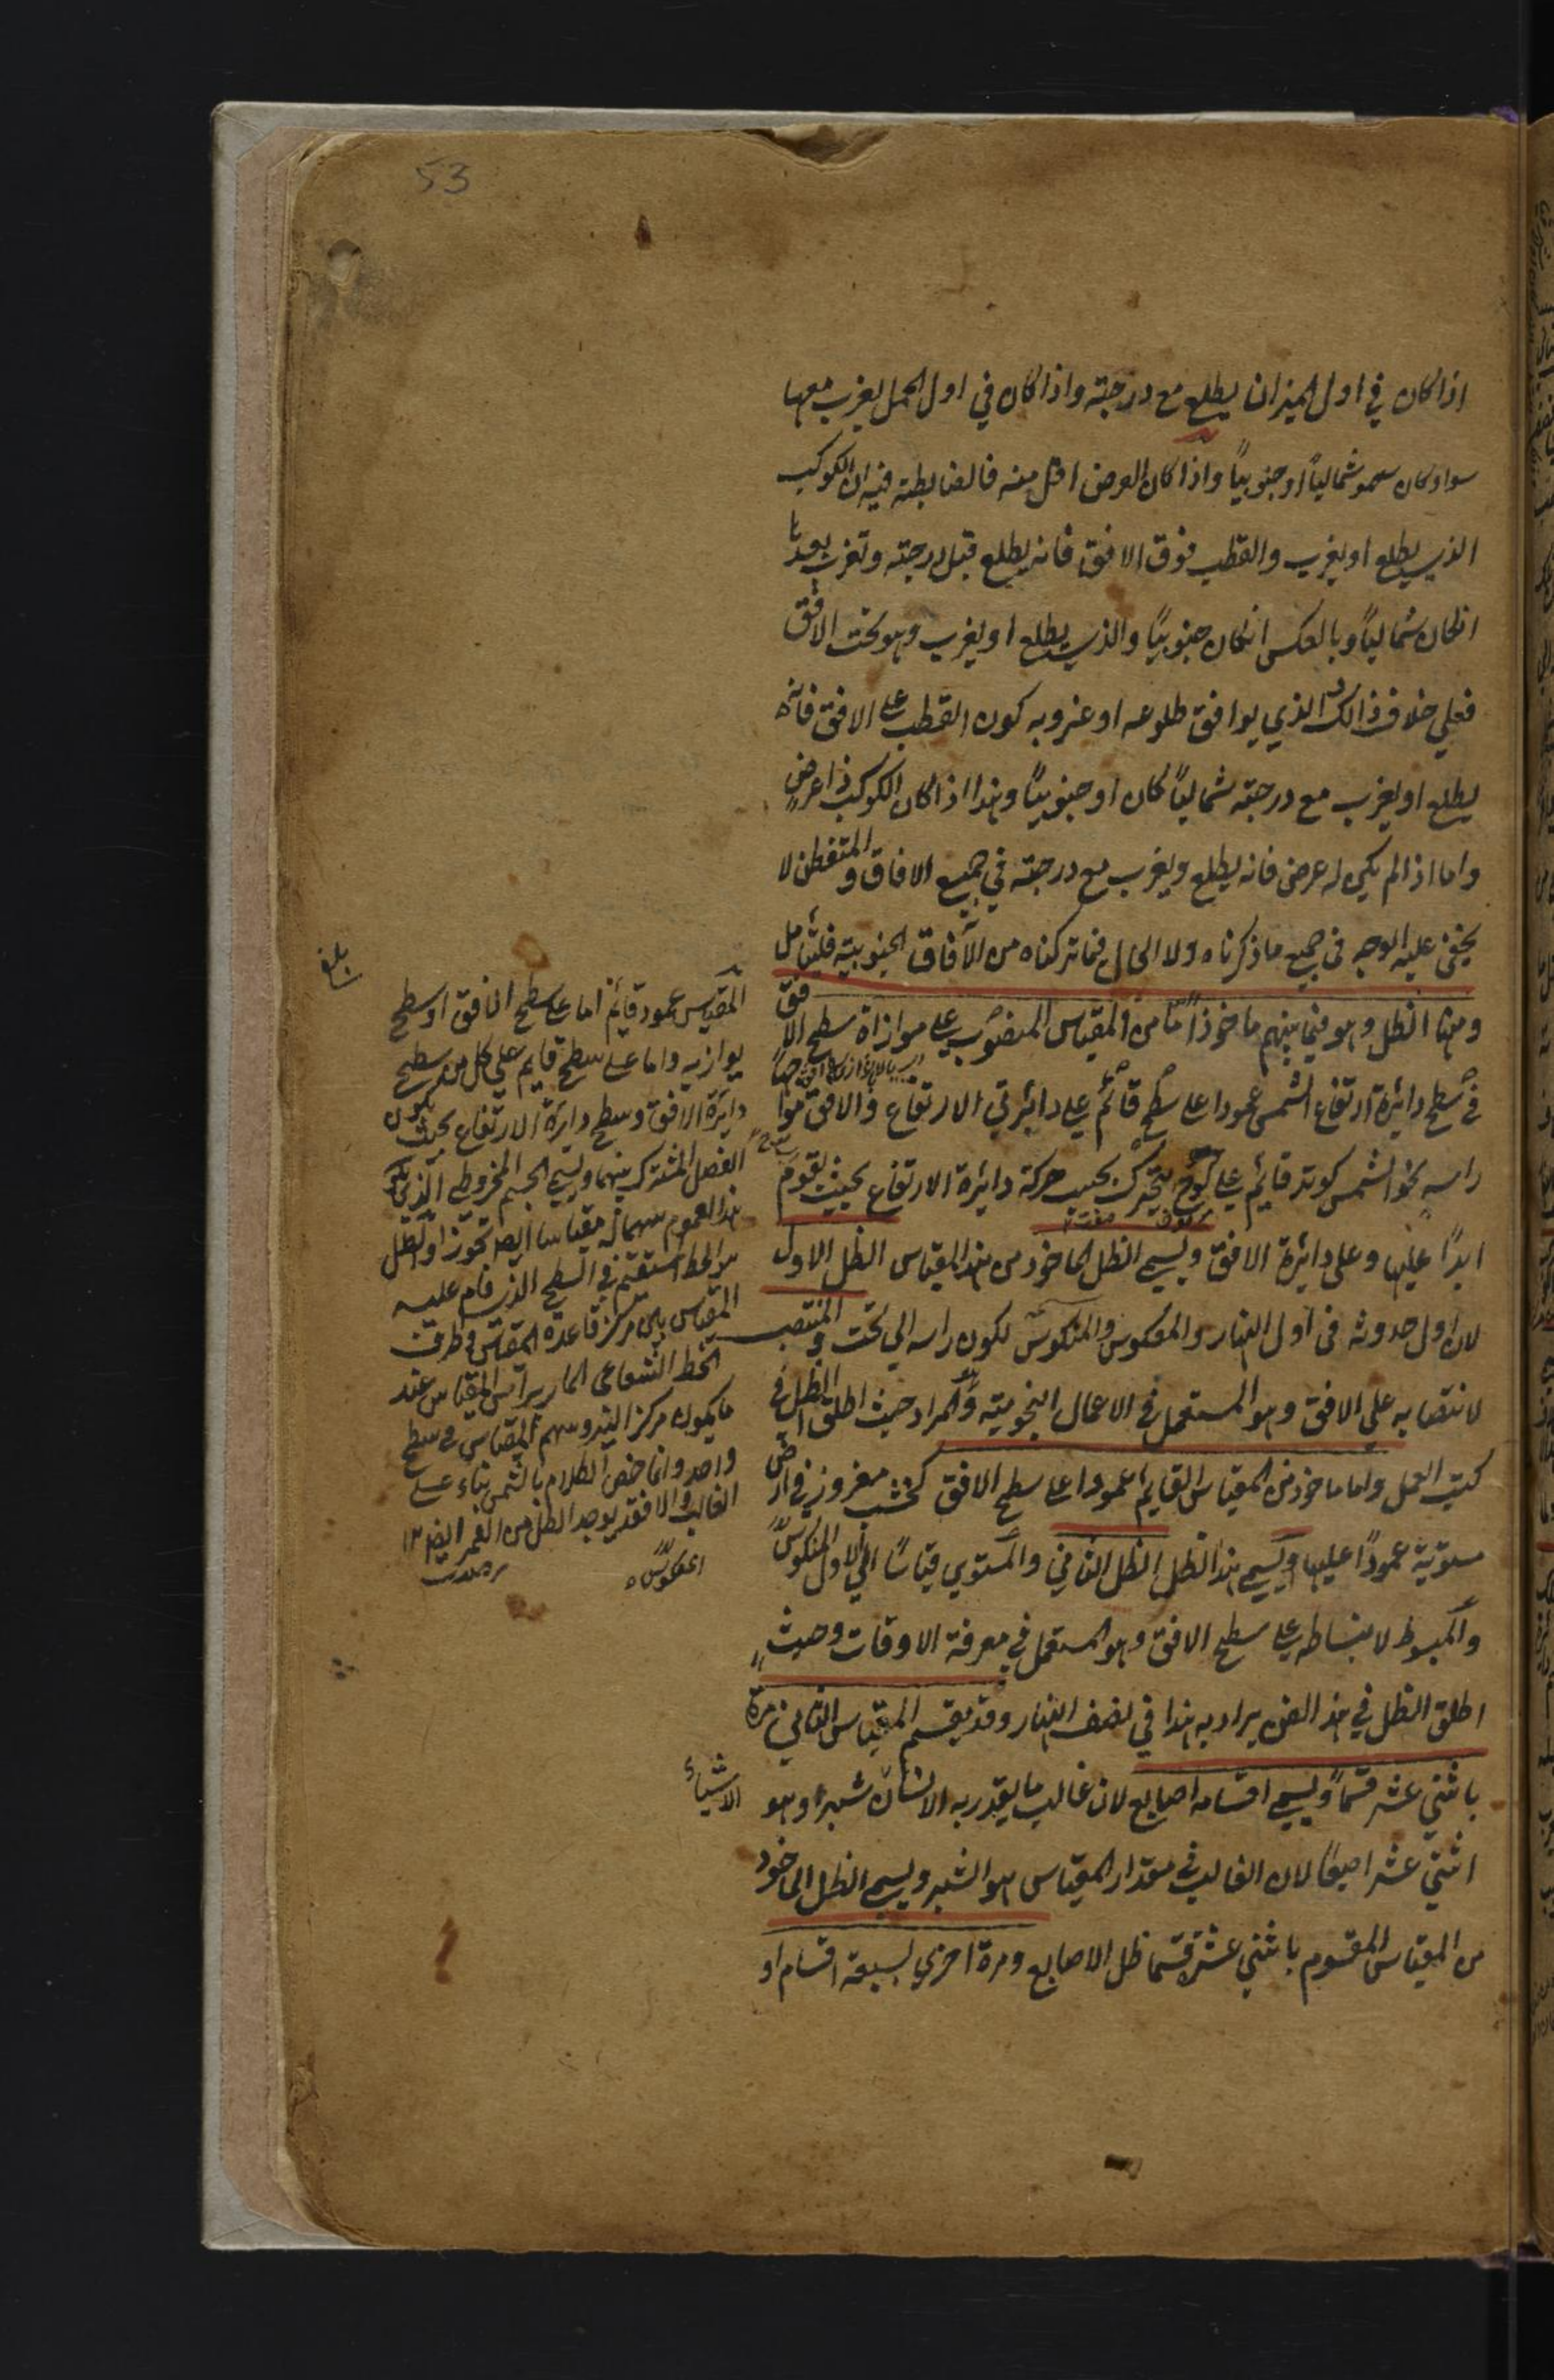 53
اذا كان في اول الميزان يطلع مع درجته واذا كان في اول الحمل يغرب معها
سواء كان سمو شمالياً او جنوبياً واذا كان العرض اقل منه فالضابطة فيه ان الكوكب
الذي يطلع او يغرب والقطب فوق الافق فانه يطلع قبل درجته وتغرب بعدها
انكان شمالياً وبالعكس انكان جنوبياً والذي يطلع او يغرب وهو تحت الافق
فعلى خلاف ذالك والذي يوافق طلوعه او غروبه كون القطب على الافق فانه
يطلع او يغرب مع درجته شمالياً كان او جنوبياً وهذا اذا كان الكوكب ذا عرض
واما اذا لم يكن له عرض فانه يطلع ويغرب مع درجته في جميع الافاق والمتفطن لا
يخفى عليه الوجه في جميع ما ذكرناه ولا الحال فيما تركناه من الآفاق الجنوبية فليتأمل
ومنها الظل وهو فيما بينهم ماخوذ امّا من المقياس المنصوب على موازاة سطح الافق
في سطح دائرة ارتفاع الشمس عمودا على سطح قائم على دائرتي الارتفاع والافق مواجهاً
راسه نحو الشمس كوتد قائم على لوح يتحرك بحسب حركة دائرة الارتفاع بحيث يقوم
ابداً عليها وعلى دائرة الافق ويسمى الظل الماخوذ من هذا المقياس الظل الاول
لان اول حدوثه في اول النهار والمعكوس والمنكوس لكون راسه الى تحت والمنتصب
لانتصابه على الافق وهو المستعمل في الاعمال النجومية والمراد حيث اطلق الظل في
كتب العمل واما ماخوذ من المقياس القايم عمودا على سطح الافق كخشب مغروز في ارض
مستوية عموداً عليها ويسمى هذا الظل الظل الثاني والمستوي قياساً الى الاول المنكوس
والمبسوط لانبساطه على سطح الافق وهو المستعمل في معرفة الاوقات وحيث
اطلق الظل في هذا الفن يراد به هذا في نصف النهار وقد يقسم المقياس الثاني مرة
باثني عشر قسماً ويسمى اقسامه اصابع لان غالب ما يقدر به الانسان شبر وهو
اثني عشر اصبعا لان الغالب في مقدار المقياس هو الشبر ويسمى الظل الماخوذ
من المقياس المقسوم باثني عشر قسما ظل الاصابع ومرة اخرى بسبعة اقسام او
بلغ
المقياس عمود قائم اما على سطح الافق او سطح
يوازيه واما على سطح قايم على كل من سطح
دائرة الافق وسطح دايرة الارتفاع بحيث يكون
الفصل المشترك بينهما ويسمى الجسم المخروطي الذي
هذا العموم سهمه مقياسا ايضا تجوزا والظل
هو الخط المستقيم في السطح الذي قام عليه
المقياس بين مركز قاعدة المقياس وطرف
الخط الشعاعي المار براس المقياس عند
ما يكون مركز النير وسهم المقياس في سطح
واحد وانما خص الكلام بالشمس بناء على
الغالب والا فقد يوجد الظل من القمر ايضا ١٢
المعكوس
الاشياء